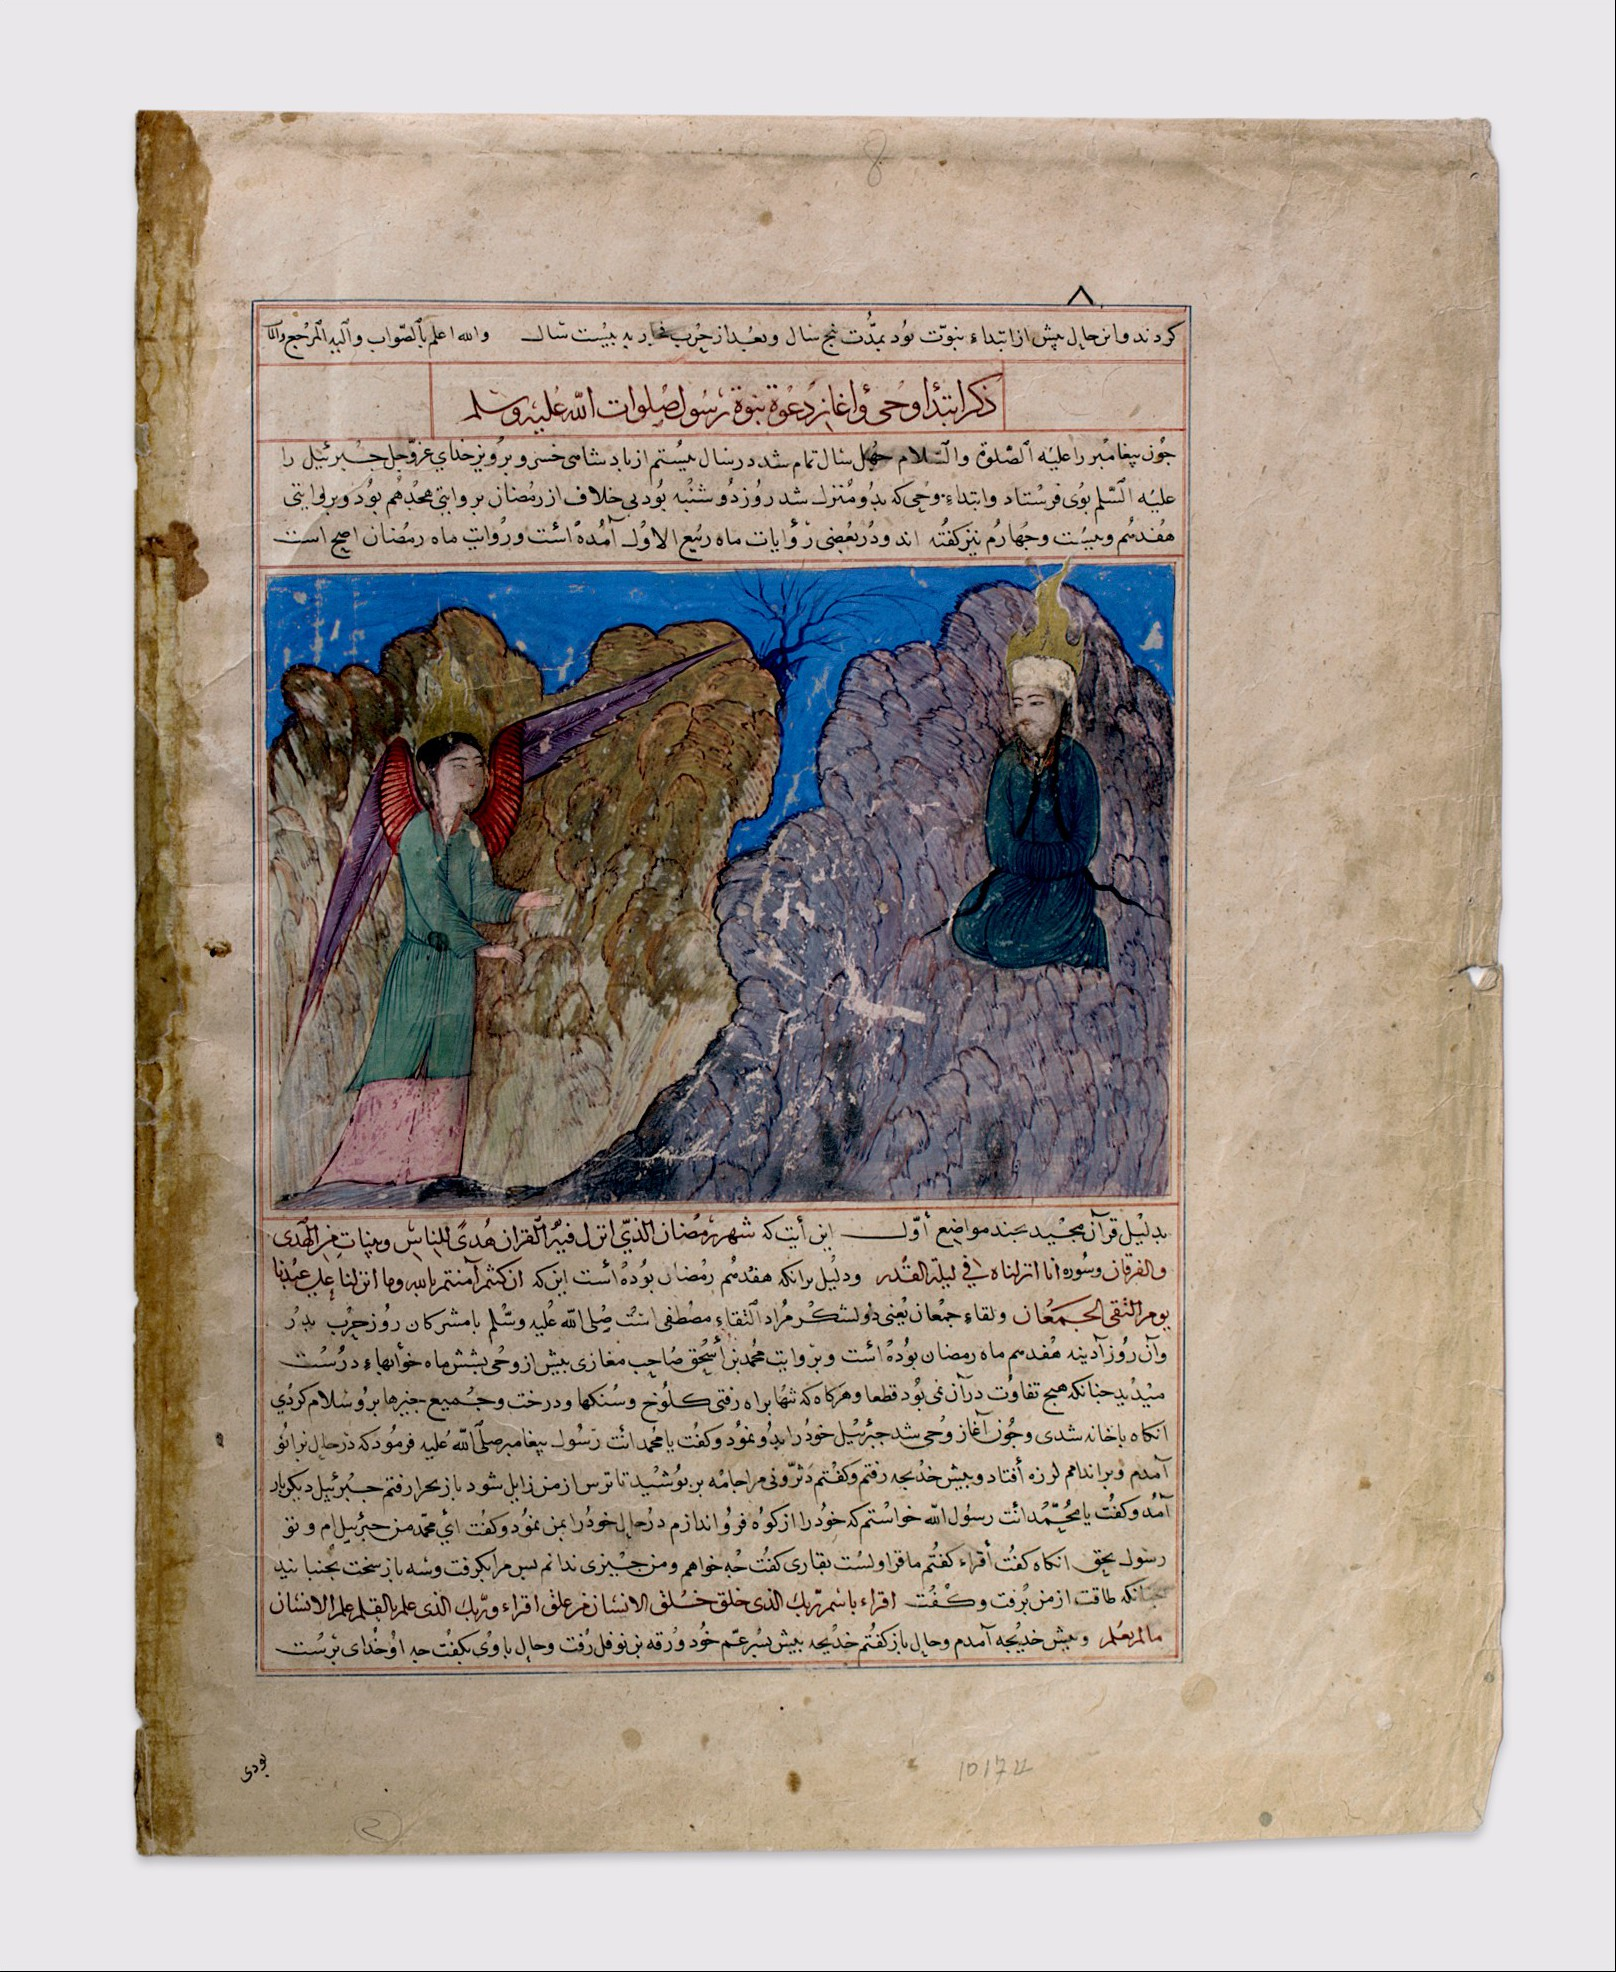 8
٨
کردند و این حال پیش از ابتداء نبوّت بُود بمدّت پنج سال و بعد از حرب فجار به بیست سال والله اعلم بالصّواب والیه المرجع والمآب
ذکر ابتداء وحی و اغاز دعوة نبوة رسول صلوات الله علیه وسلم
جون بیغامبر را علیه الصّلوة والسّلام جهل سال تمام شد در سال بیستم از بادشاهی خسرو برویز خدای عزّوجل جبرئیل را
علیه السّلم بوی فرستاد و ابتداء وحی که بدو منزل شد روز دوشنبه بود بی خلاف از رمضان بروایتی هجدهم بود و بروایتی
هفدهم و بیست و جهارم نیز کفته اند و در بعضی روایات ماه ربیع الاول آمده است و روایت ماه رمضان اصح است
بدلیل قرآن مجید بجند مواضع أوّل این أیت که شهر رمضان الذی انزل فیه القران هدًی للناس وبینات من الهدی
والفرقان وسوره انا انزلناه في لیلة القدر ودلیل برانکه هفدهم رمضان بوده است این که ان کنتم آمنتم بالله وما انزلنا علی عبدنا
یوم التقی الجمعان ولقاء جمعان یعنی دو لشکر مراد التقاء مصطفی است صلی الله علیه وسّلم با مشرکان روز حرب بدر
وآن روز آدینه هفدهم ماه رمضان بوده است و بروایت محمد بن أسحق صاحب مغازی بیش از وحی بشش ماه خوابهاء درست
میدید جنانکه هیج تفاوت در آن نمی بود قطعا و هرکاه که تنها براه رفتی کلوخ و سنکها و درخت و جمیع جیزها برو سلام کردی
انکاه باخانه شدی و جون آغاز وحی شد جبرئیل خود را بدو نمود و کفت یا محمد انت رسول بیغامبر صلی الله علیه فرمود که در حال بزانو
آمدم و بر اندام لرزه أفتاد و بیش خدیجه رفتم و کفتم دثرونی مرا جامه بر بوشید تا ترس از من زایل شود باز بحرا رفتم جبرئیل دیکربار
آمد و کفت یا محمّد انت رسول الله خواستم که خود را از کوه فرو اندازم در حال خود را بمن نمود و کفت ای محمد من جبرئیلم و تو
رسول بحق انکاه کفت أقراء کفتم ما قرا ولست بقاری کفت جه خواهم ومن جیزی ندانم بس مرا بکرفت و سه باز سخت بجنبانید
جنانکه طاقت از من برفت و کفت اقراء باسم ربّك الذی خلق خلق الانسان من علق اقراء وربّك الذی علم بالقلم علم الانسان
مالم یعلم و بیش خدیجه آمدم و حال باز کفتم خدیجه بیش بسر عمّ خود ورقه بن نوفل رفت و حال با وی بکفت جه او خدای برست
بودی
10174
2